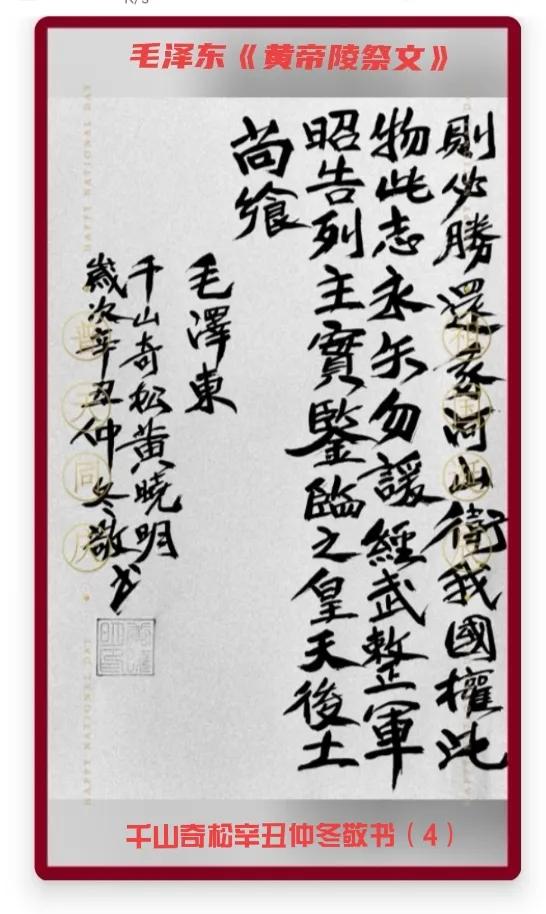 K/s
毛泽东《黄帝陵祭文》
則必勝還我河山衛我國權此
物此志永矢勿諼經武整軍
昭告列主實鑒臨之皇天後土
尚飨
毛澤東
千山奇松黄曉明
歲次辛丑仲冬敬书
普天同庆
HAPPY NATIONAL DAY
HAPPY NATIONAL DAY
千山奇松辛丑仲冬敬书（4）